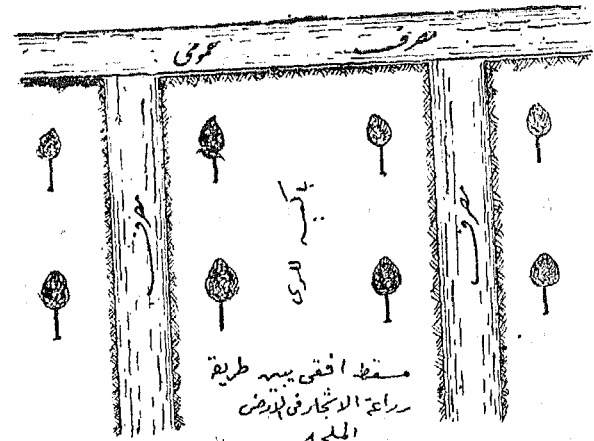 مصرف عمومى
مصرف
مصرف
للرى
مسقط افقى يبين طريقة
زراعة الاشجار فى الارض
الملحة